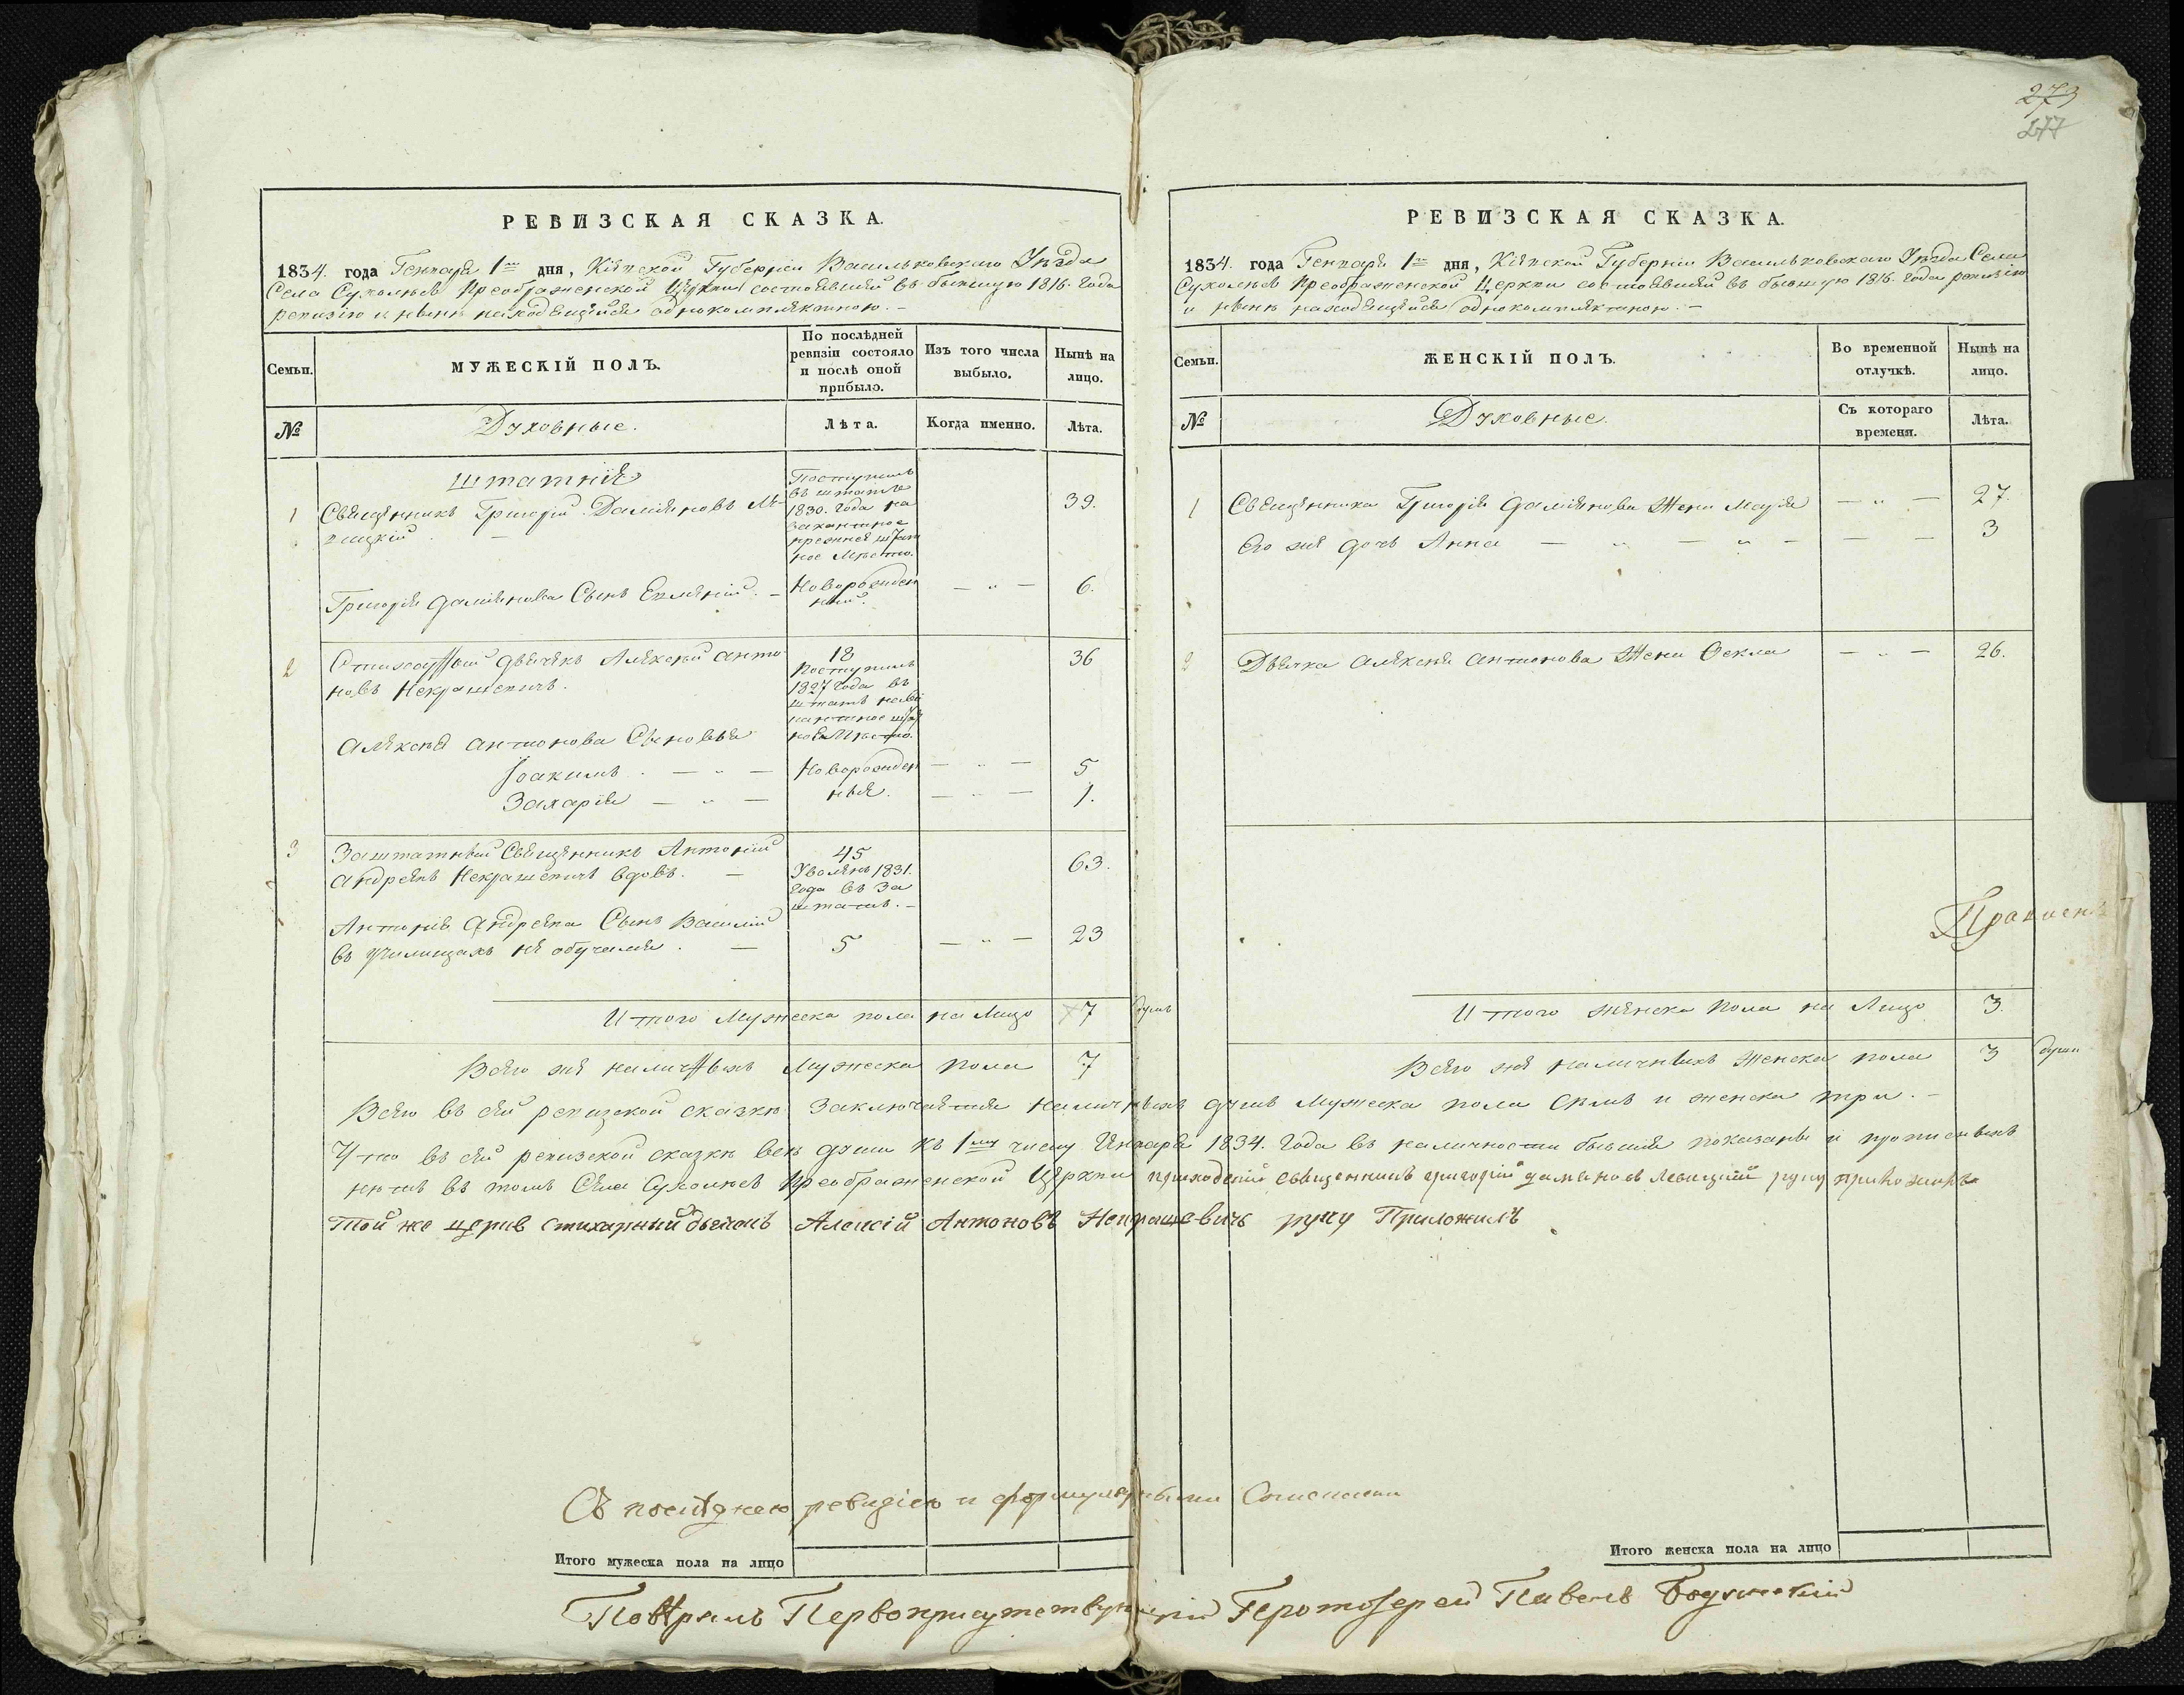 273
277
РЕВИЗСКАЯ СКАЗКА.
1834. года Генваря 1го дня, Кіевской Губерніи Васильковскаго Уѣзда
Села Сухолѣсъ Преображенской Церкви состоявшей въ бывшую 1816. года
ревизію и нынѣ находящейся однокомплектною. –
Семьи.
МУЖЕСКІЙ ПОЛЪ.
По послѣдней
ревизіи состояло
и послѣ оной
прибыло.
Изъ того числа
выбыло.
Нынѣ на
лицо.
№
Духовные.
Лѣта.
Когда именно.
Лѣта.
штатніе
1 Священникъ Григорій Даміяновъ Ле-
вицкій
Поступилъ
въ штатъ
1830. года на
вакантное
прежнея штат
ное мѣсто.
39.
Григорія Даміянова Сынъ Евменій. –
Новорожден
ный.
— „ —
6.
2 Стихарный дьячекъ Алексѣй Анто
новъ Некрашевичъ.
18
Поступилъ
1827 года въ
штатъ на ва
кантное штат
ное мѣсто.
36
Алексѣя Антонова Сыновья
Іоакимъ . — „ — Новорожден — „ — 5
Захарія — „ — ныя. — „ — 1.
3 Заштатный Священникъ Антоній
Андреевъ Некрашевичъ вдовъ. –
45
Уволенъ 1831.
года въ за
штатъ. –
63.
Антонія Андреева Сынъ Василій
въ училищахъ не обучался. —
5 — „ — 23
Итого Мужеска пола на Лицо 7 душъ
Всего же наличныхъ Мужеска пола 7
РЕВИЗСКАЯ СКАЗКА.
1834. года Генваря 1го дня, Кіевской Губерніи Васильковскаго Уѣзда Села
Сухолѣсъ Преображенской Церкви состоявшей въ бывшую 1816. года ревизію
и нынѣ находящейся однокомплектною. –
Семьи.
ЖЕНСКІЙ ПОЛЪ.
Во временной
отлучкѣ.
Нынѣ на
лицо.
№
Духовные.
Съ котораго
времени.
Лѣта.
1 Священника Григорія Даміянова Жена Марія — „ — 27.
Его же дочь Анна — „ — „ — — — 3
2 Дьячка Алексѣя Антонова Жена Фекла — „ — 26.
Итого женска Пола на Лицо 3.
Всего же наличныхъ Женска пола 3 души
Всего въ сей ревизской сказкѣ заключается наличныхъ душъ Мужеска пола Семь и женска три. –
Что въ сей ревизской сказкѣ всѣ души къ 1му числу Января 1834. года въ наличности бывшія показаны и прописныхъ
нѣтъ въ томъ Села Сухолѣсъ Преображенской Церкви приходскій священникъ Григорій Даміяновъ Левицкій руку приложилъ
Той же церкв стихарный дьячокъ Алексій Антоновъ Некрашевичъ руку Приложилъ
Съ послѣднею ревизіею и формулярными
Итого мужеска пола на лицо
Итого женска пола на лицо
Повѣрялъ Первоприсутствующій Протоіерей Павелъ